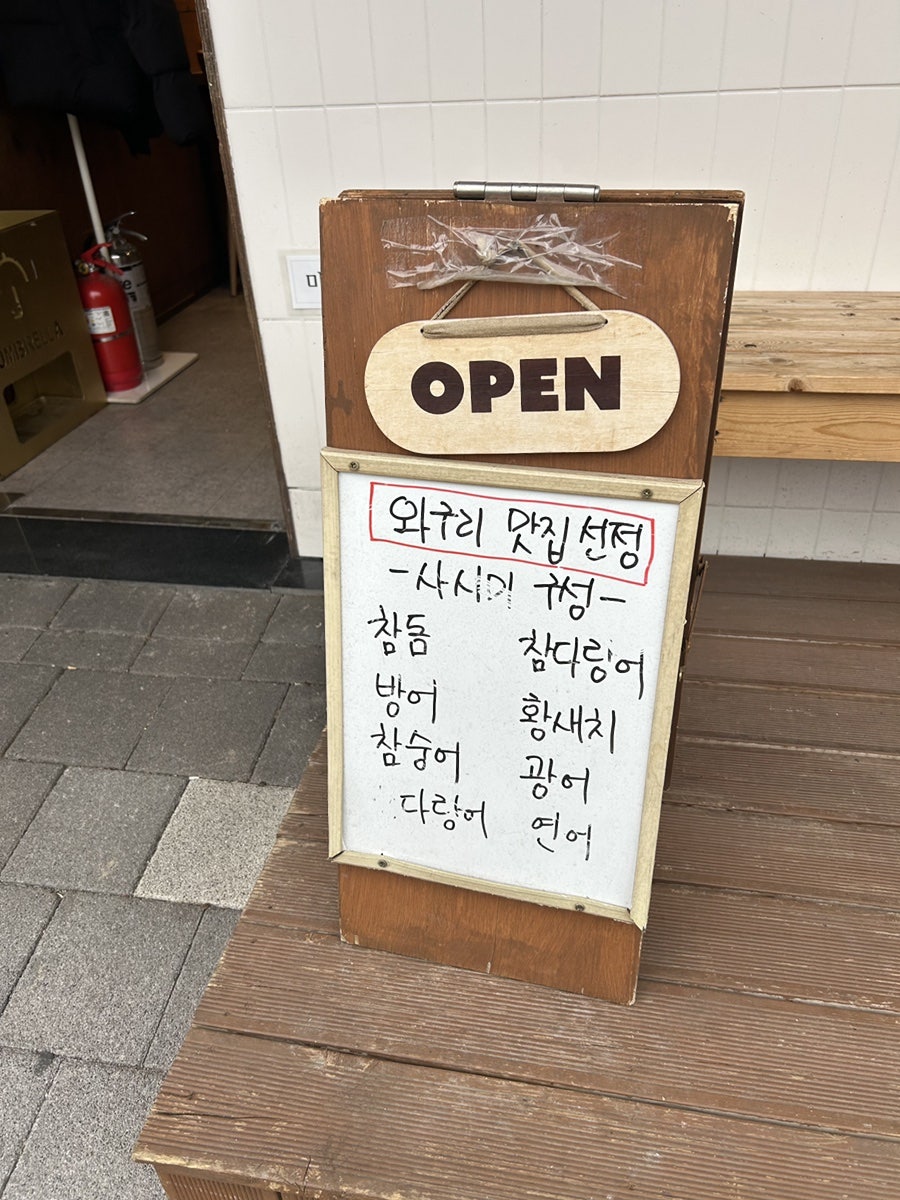 OPEN
와구리 맛집 선정
-사시미 구성-
참돔 참다랑어
방어 황새치
참숭어 광어
다랑어 연어